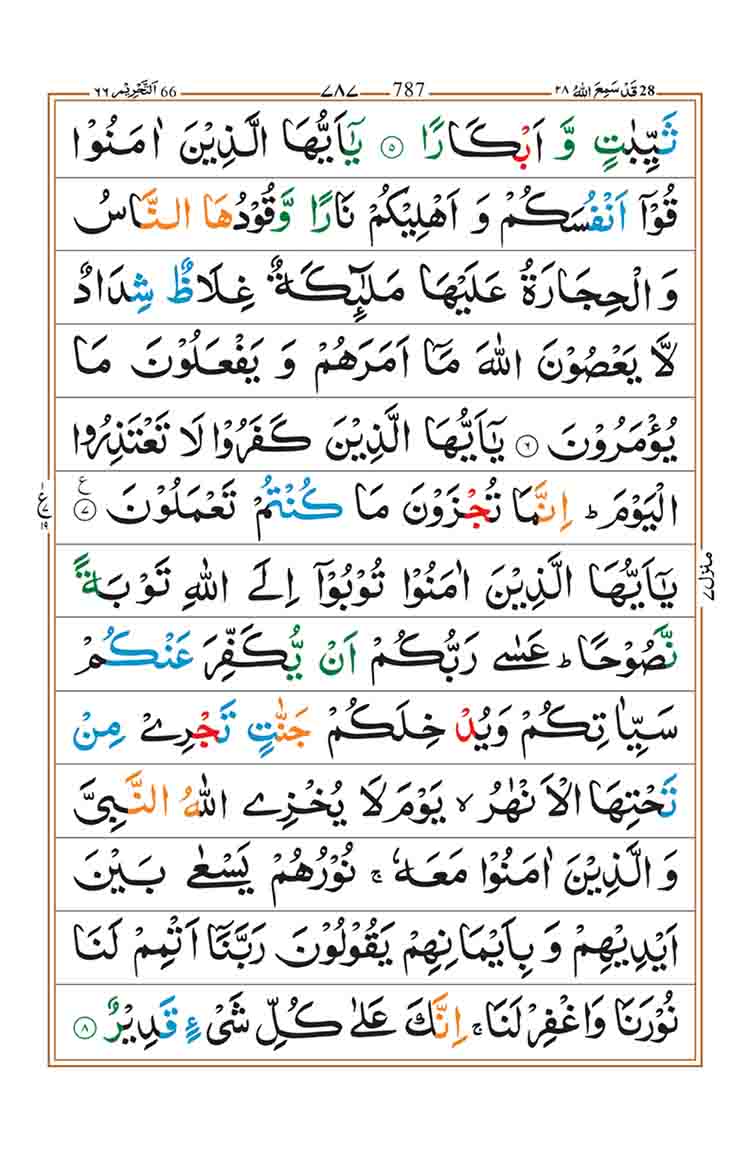 28 قَدْ سَمِعَ اللّٰهُ ٢٨ 787 ٧٨٧ 66 اَلتَّحْرِيْم ٦٦
ثَيِّبٰتٍ وَّ اَبْكَارًا ۝٥ يٰۤاَيُّهَا الَّذِيْنَ اٰمَنُوْا
قُوْۤا اَنْفُسَكُمْ وَ اَهْلِيْكُمْ نَارًا وَّقُوْدُهَا النَّاسُ
وَ الْحِجَارَةُ عَلَيْهَا مَلٰٓئِكَةٌ غِلَاظٌ شِدَادٌ
لَّا يَعْصُوْنَ اللّٰهَ مَاۤ اَمَرَهُمْ وَ يَفْعَلُوْنَ مَا
يُؤْمَرُوْنَ ۝٦ يٰۤاَيُّهَا الَّذِيْنَ كَفَرُوْا لَا تَعْتَذِرُوا
الْيَوْمَ ؕ اِنَّمَا تُجْزَوْنَ مَا كُنْتُمْ تَعْمَلُوْنَ ۝٧ ع
ع ١ ٧ ١٩
يٰۤاَيُّهَا الَّذِيْنَ اٰمَنُوْا تُوْبُوْۤا اِلَى اللّٰهِ تَوْبَةً
منزل ٧
نَّصُوْحًا ؕ عَسٰى رَبُّكُمْ اَنْ يُّكَفِّرَ عَنْكُمْ
سَيِّاٰتِكُمْ وَيُدْخِلَكُمْ جَنّٰتٍ تَجْرِيْ مِنْ
تَحْتِهَا الْاَنْهٰرُ ۙ يَوْمَ لَا يُخْزِى اللّٰهُ النَّبِىَّ
وَ الَّذِيْنَ اٰمَنُوْا مَعَهٗ ۚ نُوْرُهُمْ يَسْعٰى بَيْنَ
اَيْدِيْهِمْ وَ بِاَيْمَانِهِمْ يَقُوْلُوْنَ رَبَّنَاۤ اَتْمِمْ لَنَا
نُوْرَنَا وَاغْفِرْ لَنَا ۚ اِنَّكَ عَلٰى كُلِّ شَىْءٍ قَدِيْرٌ ۝٨